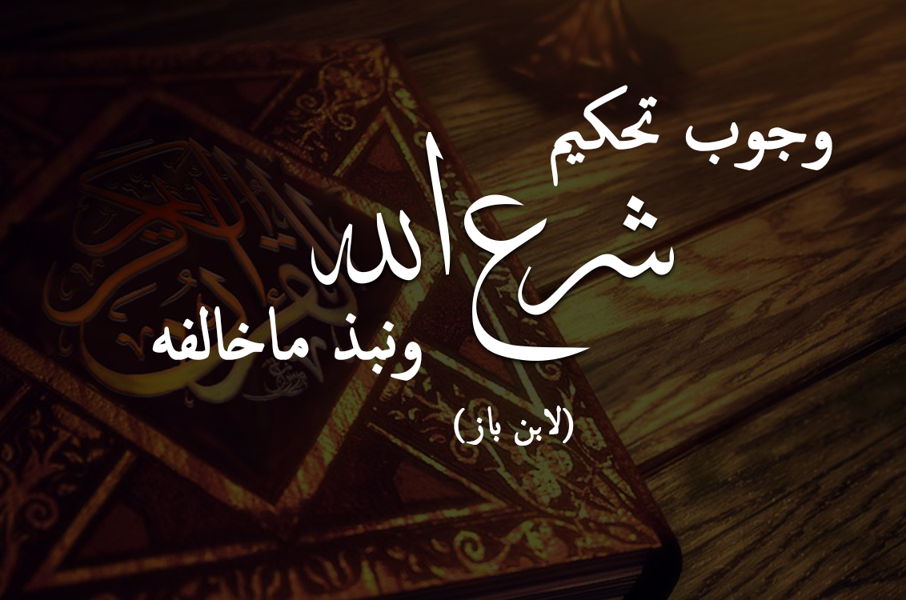 وجوب تحكيم
شرع الله
ونبذ ماخالفه
(لابن باز)
القرآن الكريم